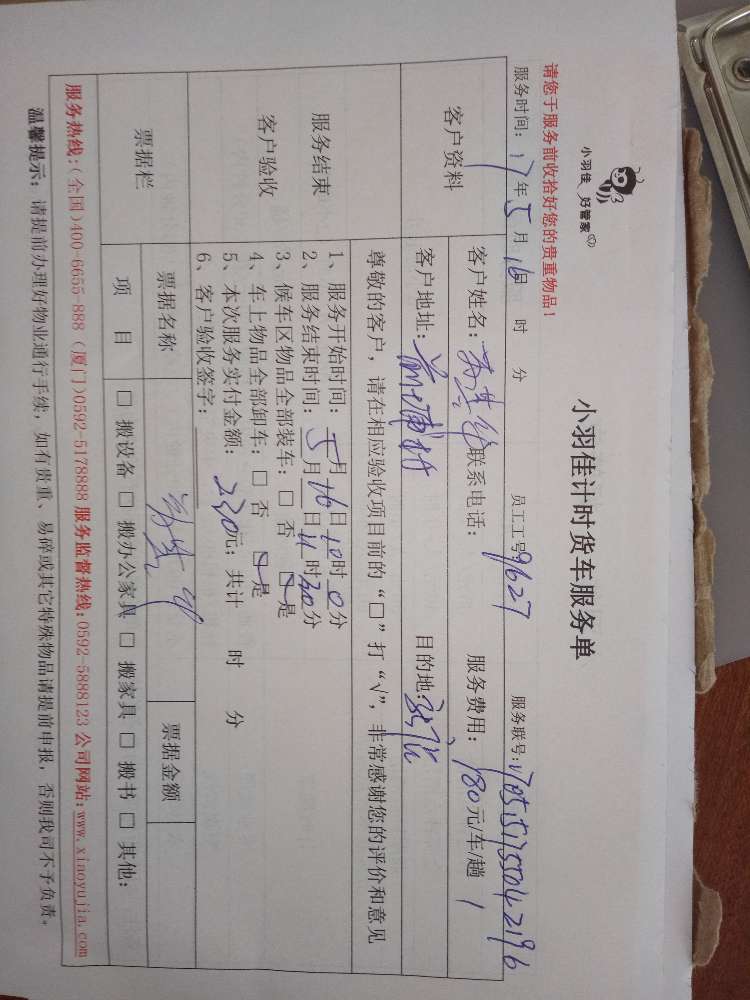 小羽佳 好管家
小羽佳计时货车服务单
请您于服务前收拾好您的贵重物品！
服务时间：17年5月16日 时 分 员工工号9627 服务联号：
客户资料
客户姓名： 联系电话： 服务费用：180元/车/趟
客户地址： 目的地：
尊敬的客户，请在相应验收项目前的“□”打“√”，非常感谢您的评价和意见
服务结束
客户验收
1、服务开始时间：5月16日10时0分
2、服务结束时间：5月 日11时30分
3、候车区物品全部装车：□ 否 □ 是
4、车上物品全部卸车：□ 否 □ 是
5、本次服务实付金额：220元；共计 时 分
6、客户验收签字：
票据栏
票据名称 票据金额
项 目 □ 搬设备 □ 搬办公家具 □ 搬家具 □ 搬书 □ 其他：
服务热线：(全国)400-6655-888 (厦门)0592-5178888 服务监督热线：0592-5888123 公司网站：www.xiaoyujia.com
温馨提示：请提前办理好物业通行手续，如有贵重、易碎或其它特殊物品请提前申报，否则我司不予负责。